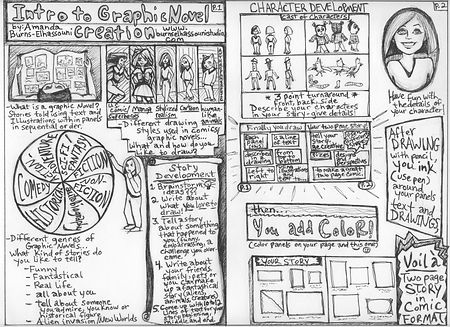 Intro to Graphic Novel
P.1
by: Amanda
Burns-Elhassouni
Creation
www.
burnselhassounistudio
.com
-What is a graphic Novel?
Stories told using text and
Illustrations within panels
in sequential order.
Comic/
Manga
Stylized
Cartoon
human-
like
realism
Different drawing
styles used in comics/
graphic novels...
What and how do you
like to draw?
COMEDY
SCI-FI
FANTASY
FICTION
NON-
FICTION
HISTORICAL
-Different genres of
Graphic Novels...
What kind of stories do
you like to tell?
- Funny
- Fantastical
- Real life
- all about you
- tell about someone
you admire, you know or
historical figure
- Alien invasion/New Worlds
Story
Development
1. Brainstorm
ideas
2. Write about
what you love to
draw!
3. Tell a story
about something
that happened to
you (funny,
embarrassing, a
challenge you over
came.
4. Write about
your friends,
family, pets or
you can make
up a fantastical
story (aliens,
animals, creatures)
CHARACTER DEVELOPMENT
P.2
Cast of Characters
* 3 point turnaround *
Front, back, side
Describe your characters
in your story-give details
Have fun with
the details of
your character
Finally you draw
Your two page story
left to
right
from
top to
bottom
to make a great
two page comic
P.1
P.2
then...
You add Color!
(Color panels on your page and this one!)
After
DRAWING
with pencil,
you ink
(use pen)
around your
panels
text and
DRAWINGS
YOUR STORY
Voilà
Two page
STORY
in
Comic
FORMAT